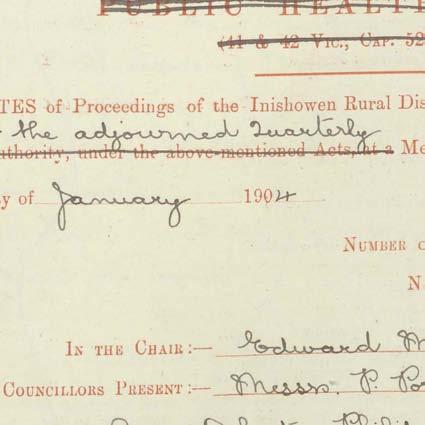 PUBLIC HEALTH
(41 & 42 VIC., CAP. 52
TES of Proceedings of the Inishowen Rural Dis
the adjourned Quarterly
authority, under the above-mentioned Acts, at a Me
y of January 1904
NUMBER
IN THE CHAIR:— Edward M
COUNCILLORS PRESENT:— Messrs. P.